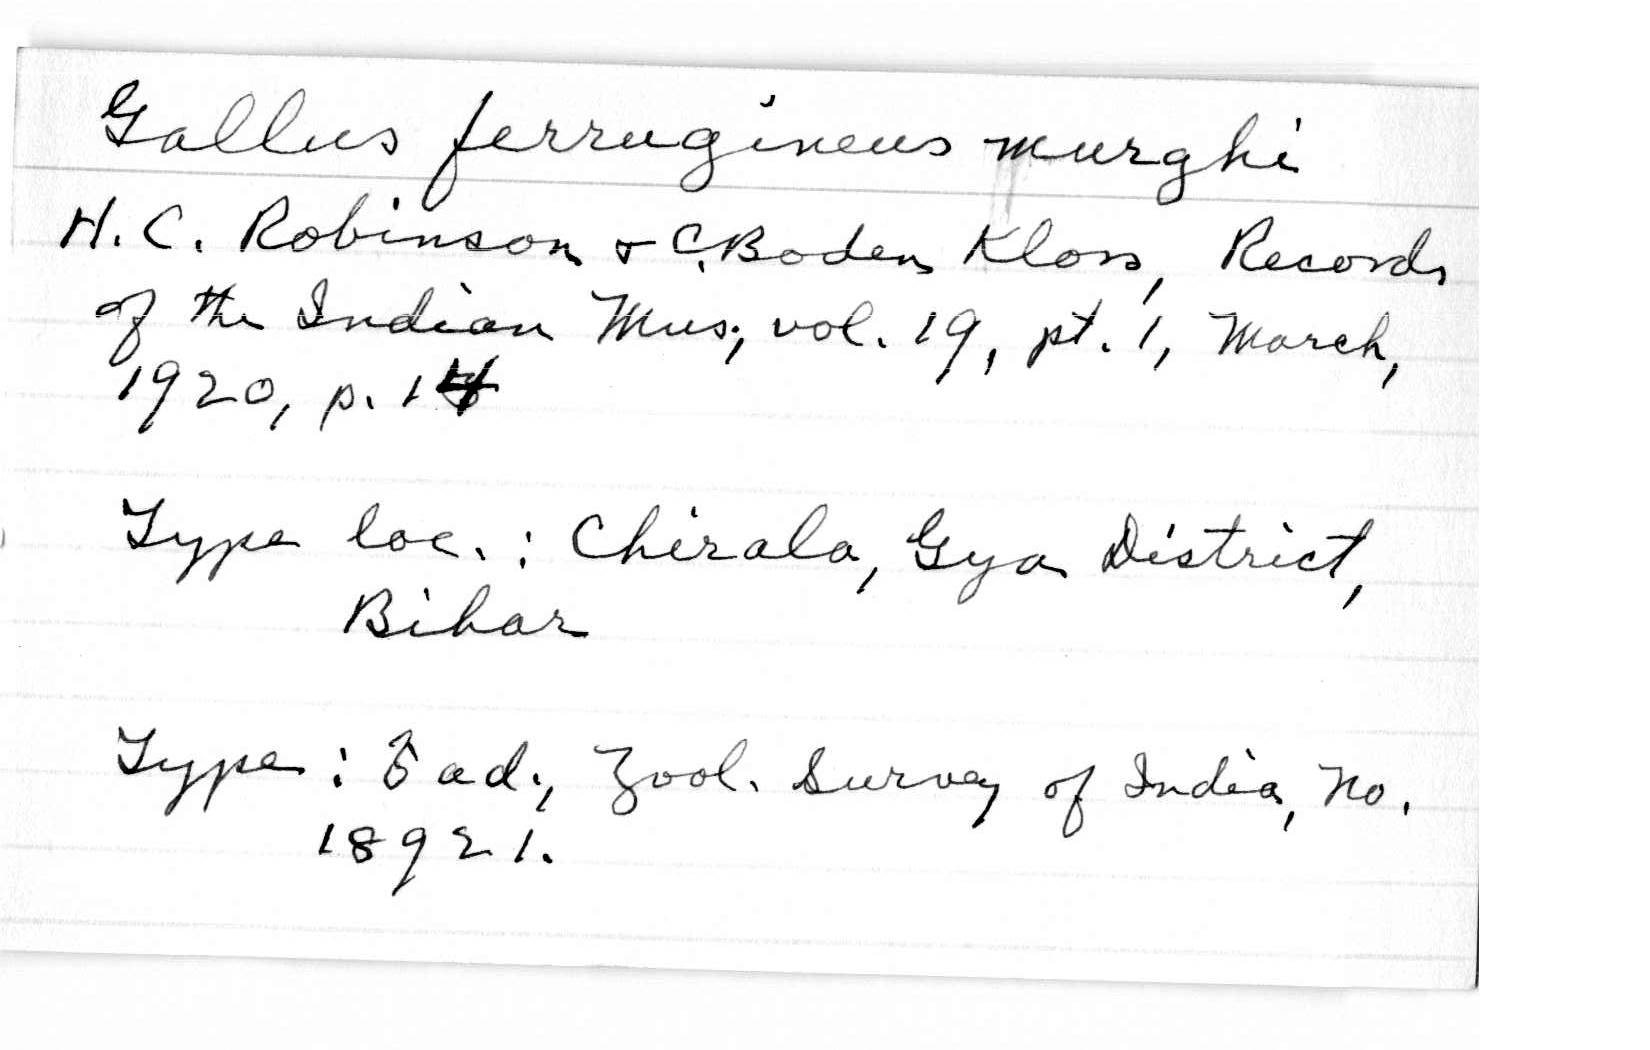 Gallus ferrugineus murghi
H. C. Robinson & C. Boden Kloss, Records
of the Indian Mus., vol. 19, pt. 1, March,
1920, p. 14
Type loc. : Chirala, Gya District,
Bihar
Type : ♂ ad., Zool. Survey of India, No.
18921.